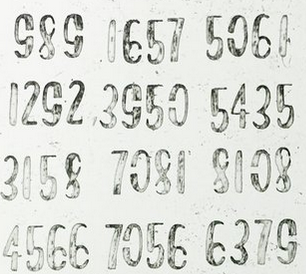 989 1657 5061
1292 3950 5435
3158 7081 8108
4566 7056 6379